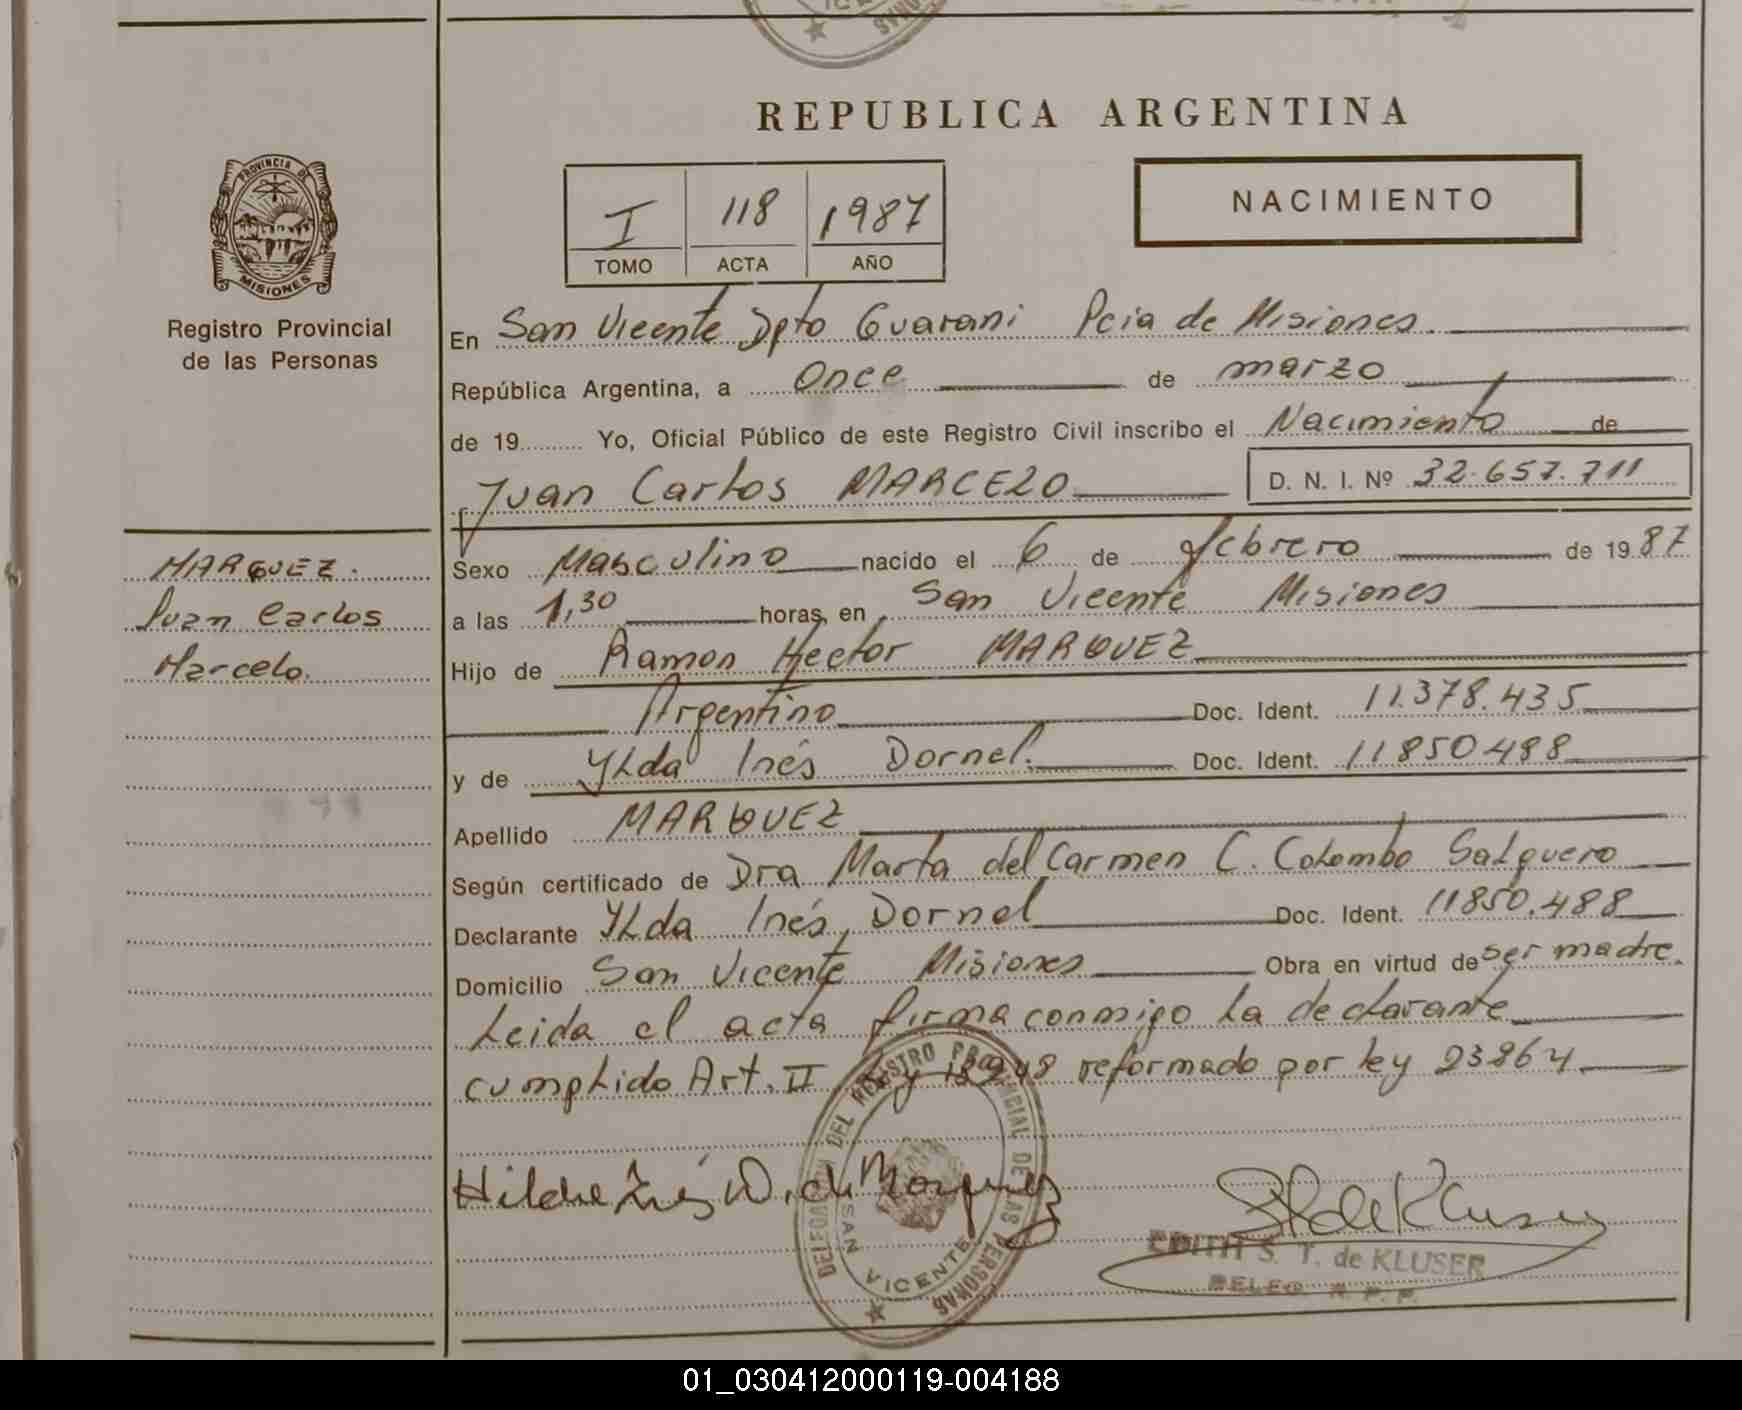 REPUBLICA ARGENTINA
PROVINCIA DE
MISIONES
Registro Provincial
de las Personas
I 118 1987
TOMO ACTA AÑO
NACIMIENTO
En San Vicente Dpto Guarani Pcia de Misiones.
República Argentina, a once de marzo
de 19 Yo, Oficial Público de este Registro Civil inscribo el Nacimiento de
Juan Carlos MARCELO D. N. I. Nº 32.657.711
MARQUEZ.
Juan Carlos
Marcelo.
Sexo Masculino nacido el 6 de febrero de 1987
a las 1,30 horas, en San Vicente Misiones
Hijo de Ramon Hector MARQUEZ
Argentino Doc. Ident. 11.378.435
y de Ylda Inés Dornel. Doc. Ident. 11850488
Apellido MARQUEZ
Según certificado de Dra Marta del Carmen C. Colombo Salguero
Declarante Ylda Inés, Dornel Doc. Ident. 11850.488
Domicilio San Vicente Misiones Obra en virtud de ser madre.
Leida el acta firma conmigo la declarante
cumplido Art. II 18248 reformado por ley 23264
DELEGACION DEL REGISTRO PROVINCIAL DE LAS PERSONAS
SAN VICENTE
Hilda Inés D. de Marquez
EDITH S. T. de KLUSER
DELEG. R. P. P.
01_030412000119-004188